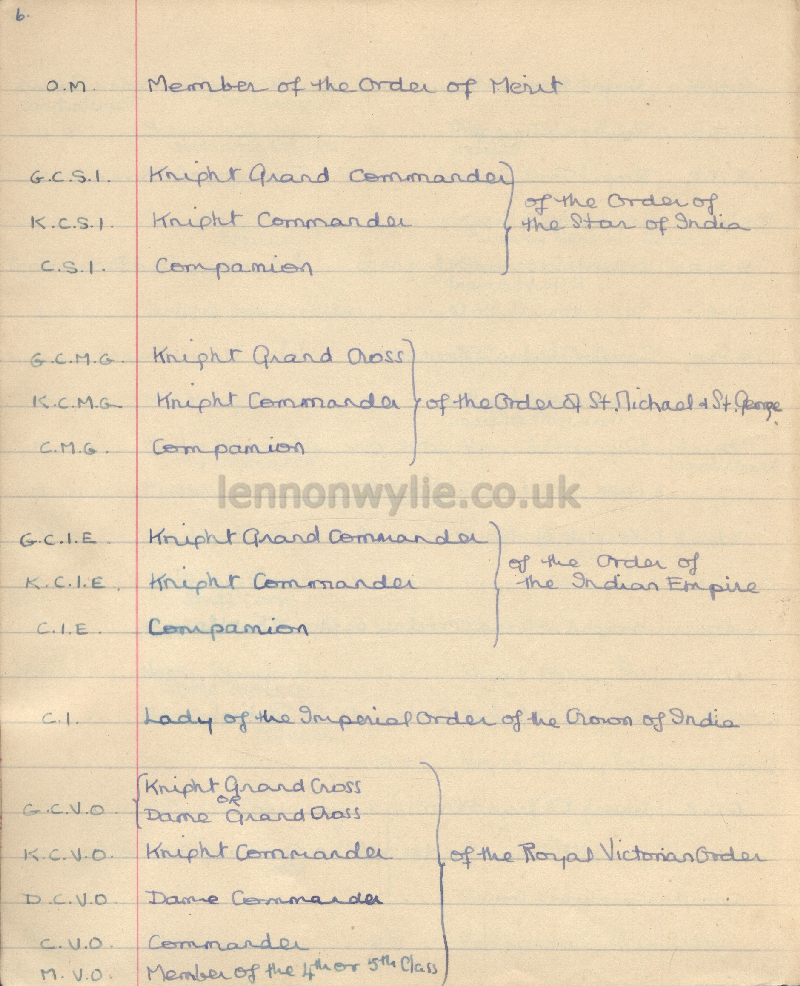 6.
O.M. Member of the Order of Merit
G.C.S.I. Knight Grand Commander
of the Order of
K.C.S.I. Knight Commander
the Star of India
C.S.I. Companion
G.C.M.G. Knight Grand Cross
K.C.M.G. Knight Commander of the Order of St. Michael & St. George.
C.M.G. Companion
lennonwylie.co.uk
G.C.I.E Knight Grand Commander
of the Order of
K.C.I.E. Knight Commander
the Indian Empire
C.I.E. Companion
C.I. Lady of the Imperial Order of the Crown of India
Knight Grand Cross
OR
G.C.V.O Dame Grand Cross
K.C.V.O. Knight Commander of the Royal Victorian Order
D.C.V.O. Dame Commander
C.V.O. Commander
M.V.O. Member of the 4th or 5th Class